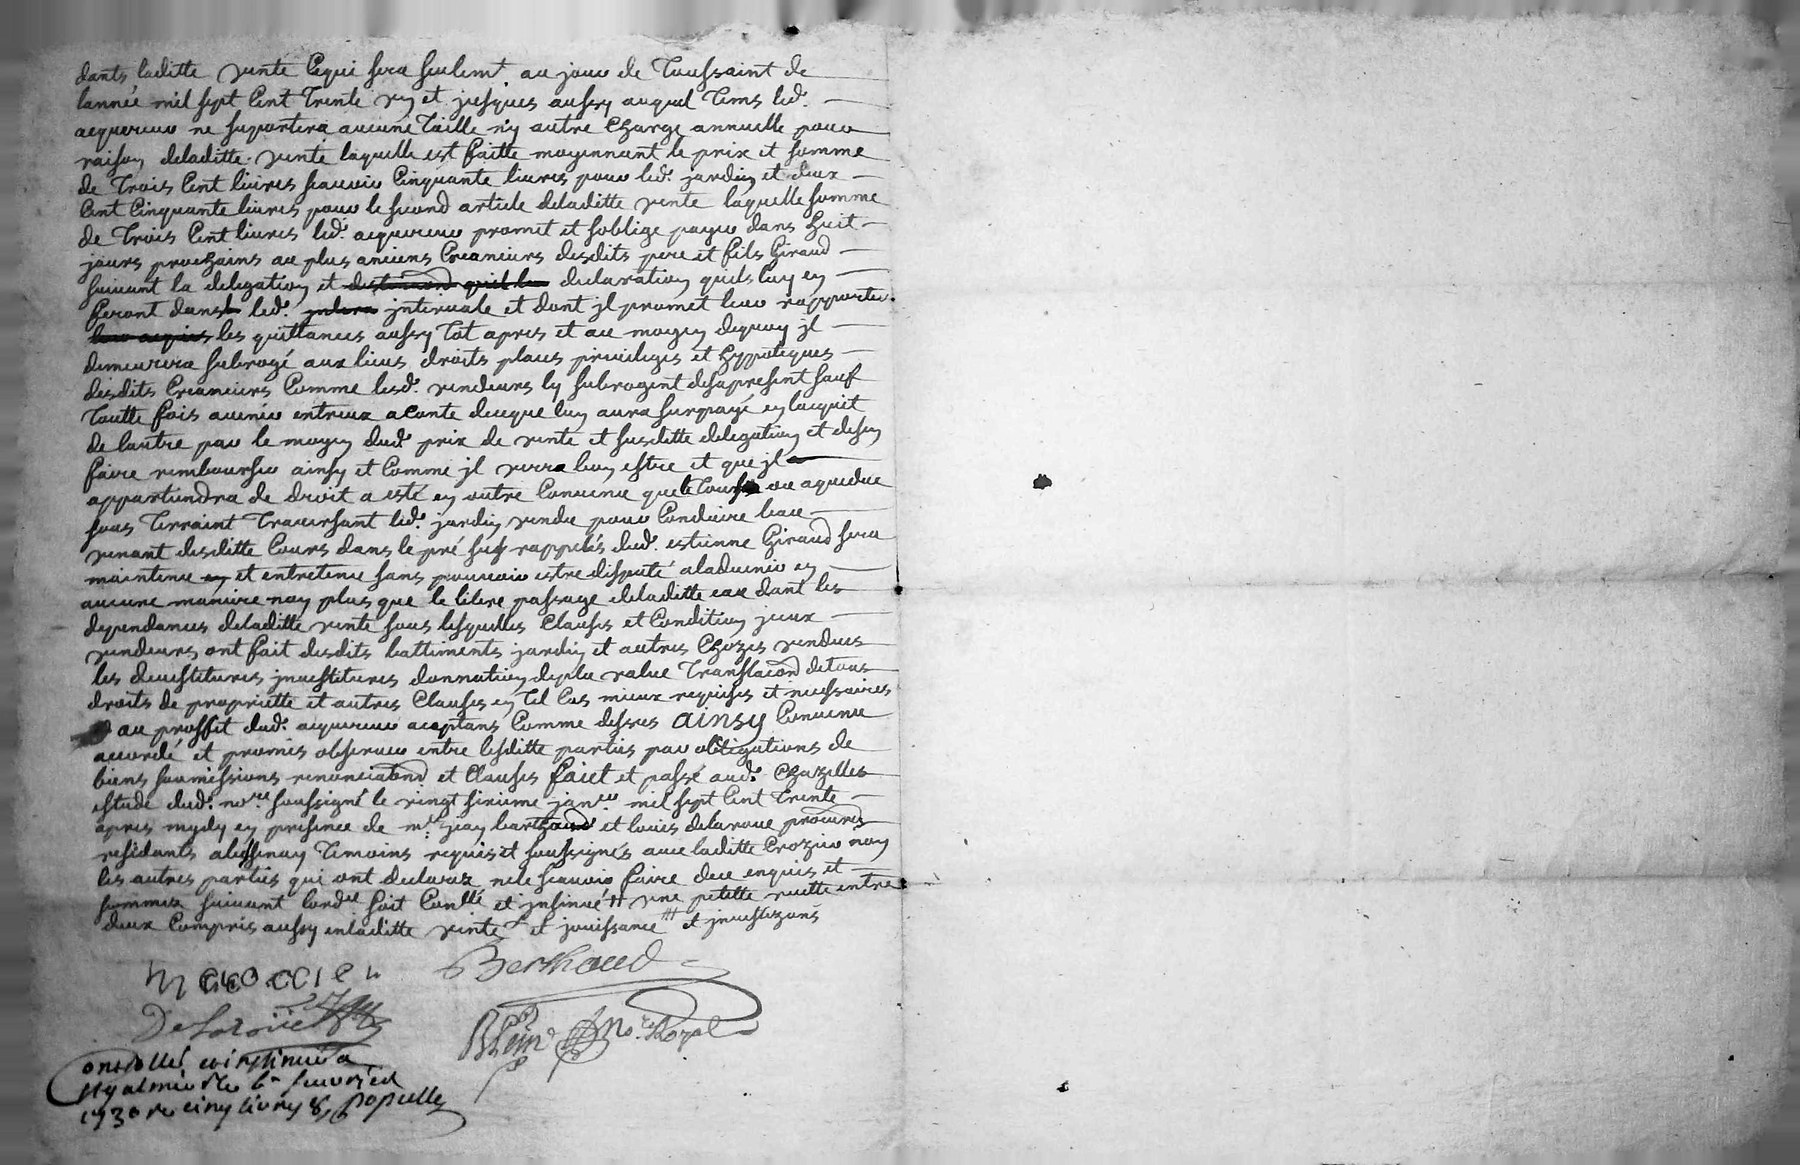 dants laditte vente Cequi sera seulemt. au jour de Toussaint de
lannée mil sept Cent Trente un et jusques aussy auquel Tems led.
acquereur ne suportera aucune Taille ny autre Charge annuelle pour
raison deladitte vente laquelle est faitte moyennant le prix et somme
de Trois Cent livres scavoir Cinquante livres pour led. jardin et deux
Cent Cinquante livres pour le second article deladitte vente laquelle somme
de Trois Cent livres led. acquereur promet et soblige payer dans huit
jours prochains au plus anciens Creanciers desdits pere et fils Giraud
suivant la delegation et declaration quils luy en
feront dans led. intervale et dont jl promet leur rapporter
les quittances aussy Tot apres et au moyen dequoy jl
demeurera subrogé aux lieus droits places privileges et hyppoteques
desdits Creanciers Comme lesd. vendeurs ly subrogent desapresent sauf
Toutte fois avenir entreux aconte decque lun aura surpayé en lacquit
de lautre par le moyen dud. prix de vente et susditte delegation et desen
faire rembourser ainsy et Comme jl verra bon estre et que jl
appartiendra de droit a esté en outre Convenu que le ou aqueduc
sous Terraint Traversant led. jardin vendu pour Conduire leau
venant desditte Cours dans le pré sus rappelés dud. estienne Giraud sera
maintenu et entretenu sans pouvoir estre disputé aladvenir en
aucune maniere non plus que le libre passage deladitte eau dant les
dependances deladitte vente sous lesquelles Clauses et Condition jceux
vendeurs ont fait desdits battiments jardin et autres Chozes vendues
les devestitures jnvestitures donnation deplu value Translaond detous
droits de propriette et autres Clauses en Tel Cas mieux requises et necessaires
au proffit dud. acquereur aceptans Comme dessus Ainsy Convenu
accordé et promis observer entre lesditte parties par obligations de
biens soumissions renonciaond et Clauses faict et passé aud. Chazelles
estude dud. nore. soussigné le vingt sixieme janer mil sept Cent Trente
apres mydy en presence de mes. jean barthaud et louis delaroue procurs.
residants Temoins requis et soussignés avec laditte Crozier non
les autres parties qui ont declarez nele scavoir faire dece enquis et
sommez suivant lordce soit Conllé et jnsinué une petitte ruette entre
deux Compris aussy enladitte vente et jouissance et
Berthaud
Delaroüe
no.re Royal
Controllé et insinué a
St galmier le fevrier
1730 re cinq livres populle